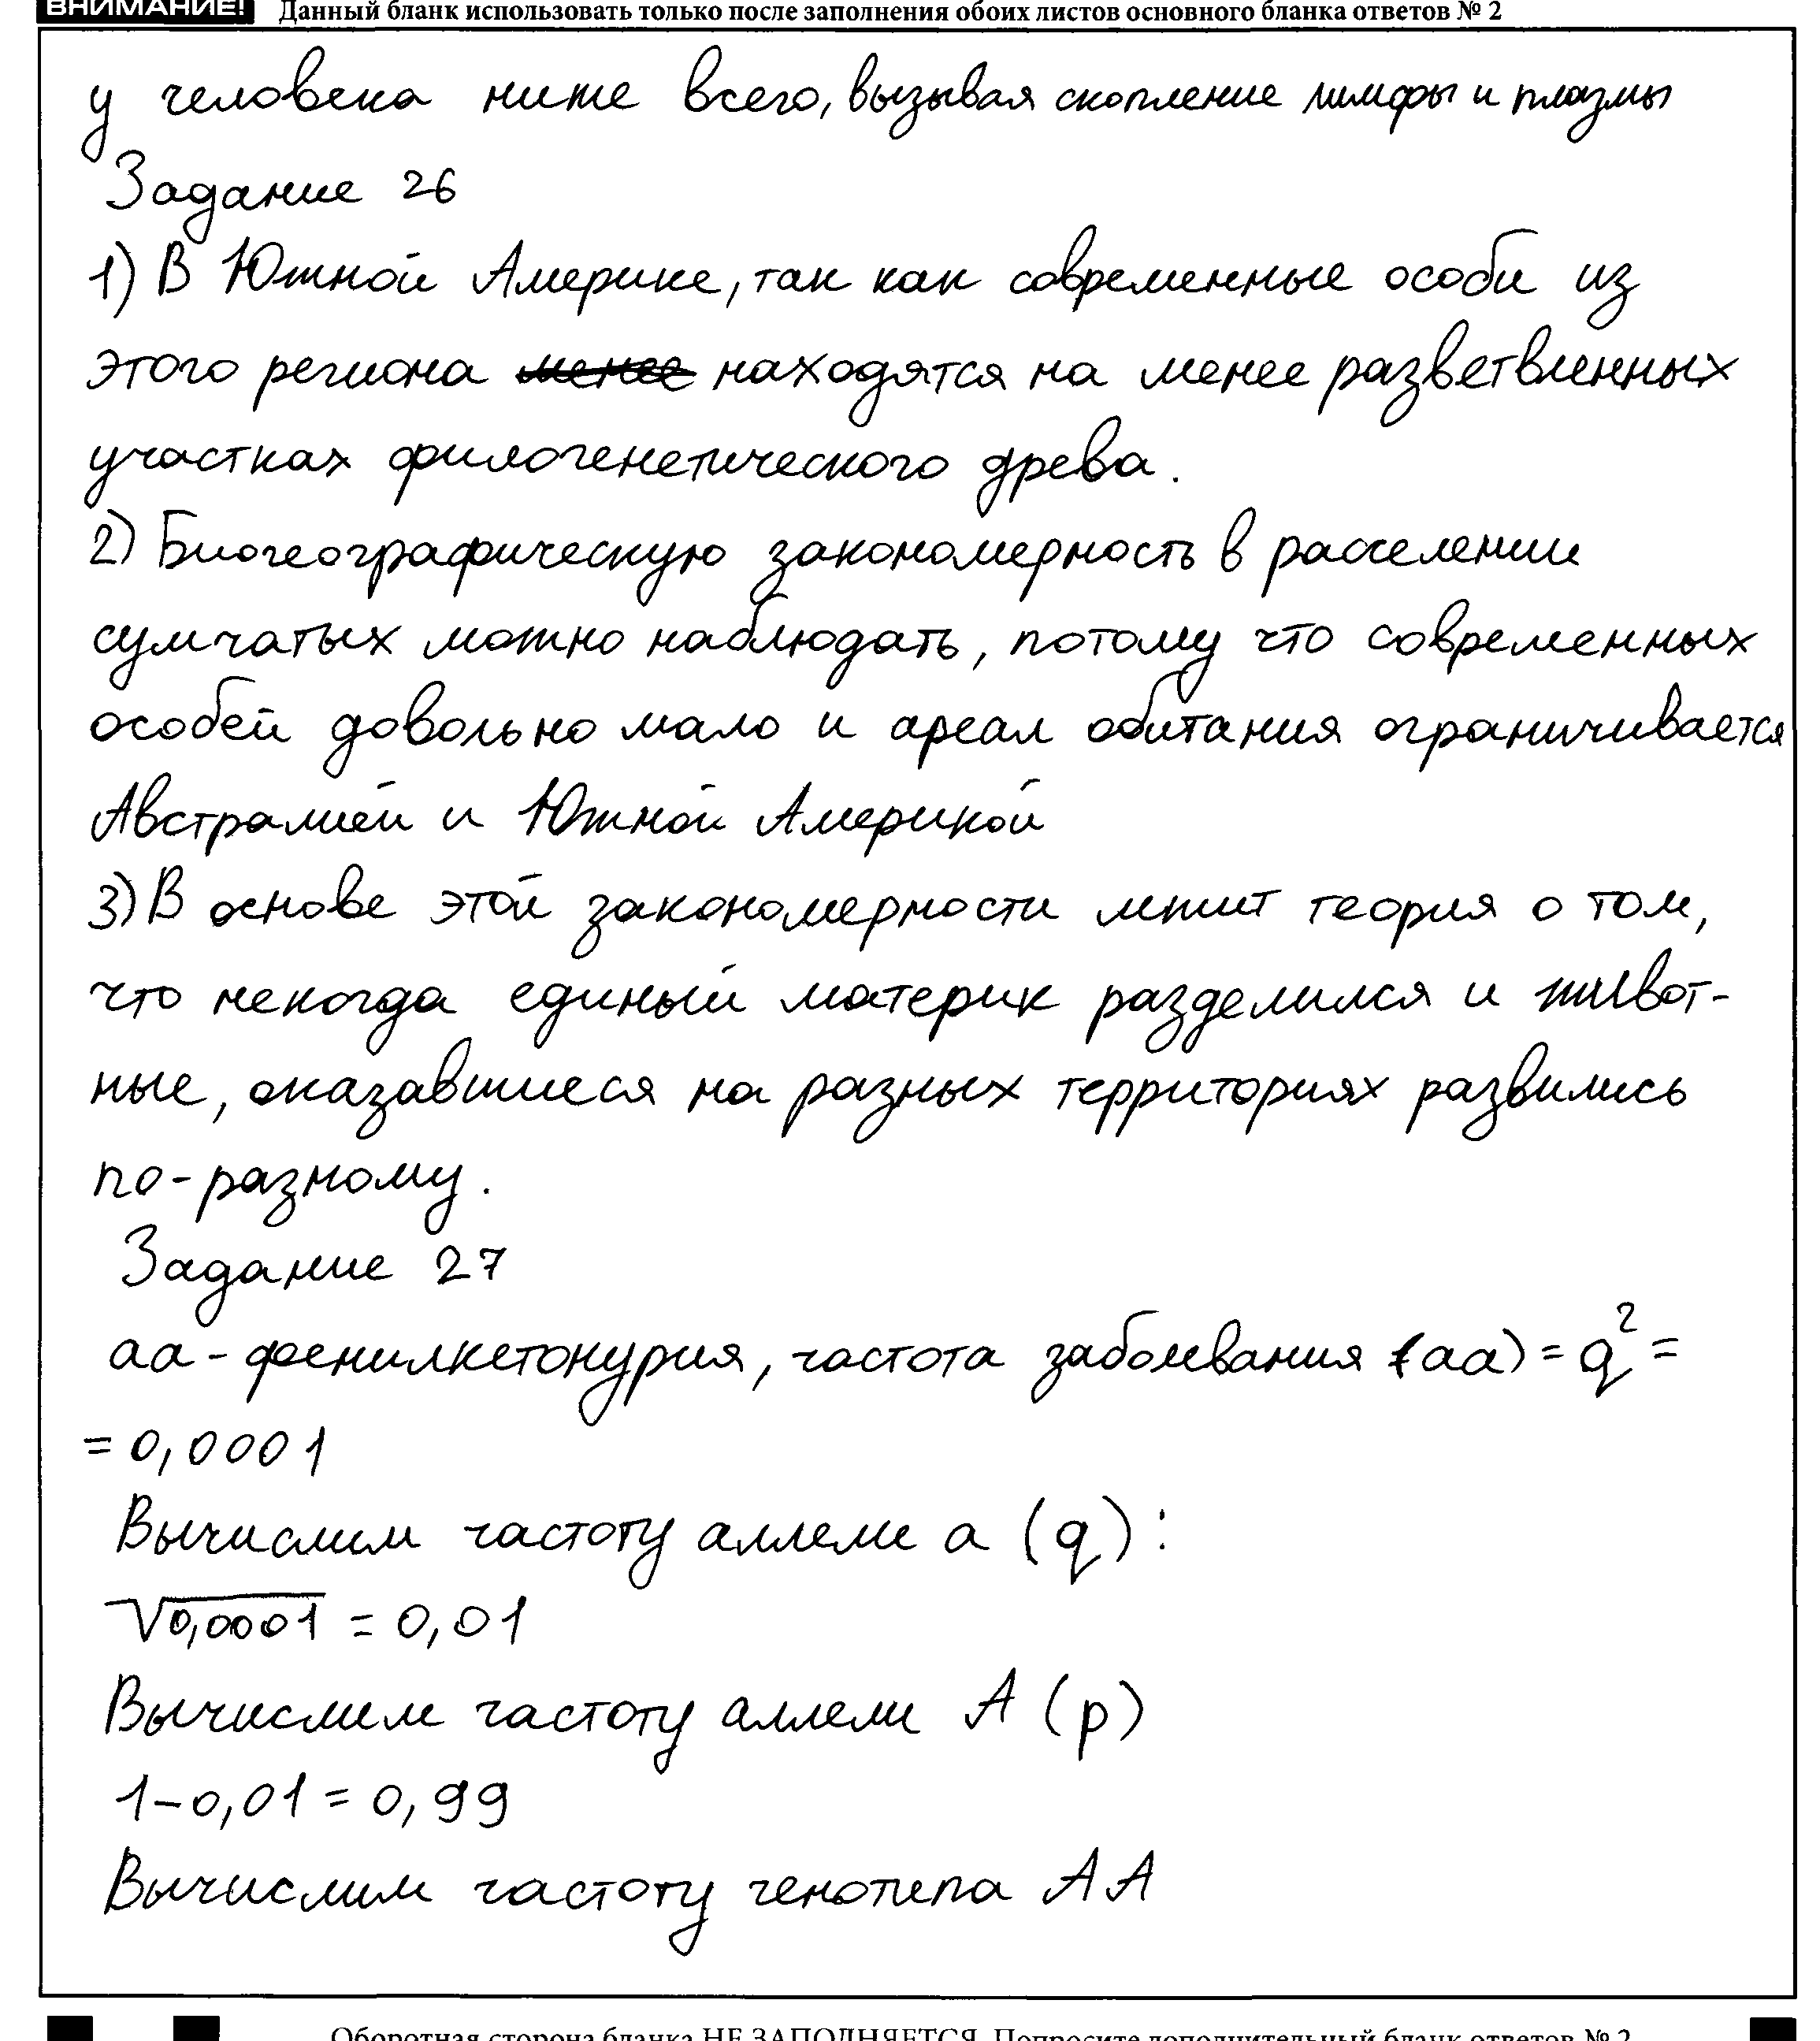 ВНИМАНИЕ! Данный бланк использовать только после заполнения обоих листов основного бланка ответов № 2
у человека ниже всего, вызывая скопление лимфы и плазмы
Задание 26
1) В Южной Америке, так как современные особи из
этого региона ~~менее~~ находятся на менее разветвленных
участках филогенетического древа.
2) Биогеографическую закономерность в расселении
сумчатых можно наблюдать, потому что современных
особей довольно мало и ареал обитания ограничивается
Австралией и Южной Америкой
3) В основе этой закономерности лежит теория о том,
что некогда единый материк разделился и живот-
ные, оказавшиеся на разных территориях развились
по-разному.
Задание 27
аа - фенилкетонурия, частота заболевания (аа) = q² =
= 0,0001
Вычислим частоту аллели а (q):
√0,0001 = 0,01
Вычислим частоту аллели А (р)
1-0,01 = 0,99
Вычислим частоту генотипа АА
Оборотная сторона бланка НЕ ЗАПОЛНЯЕТСЯ. Попросите дополнительный бланк ответов № 2